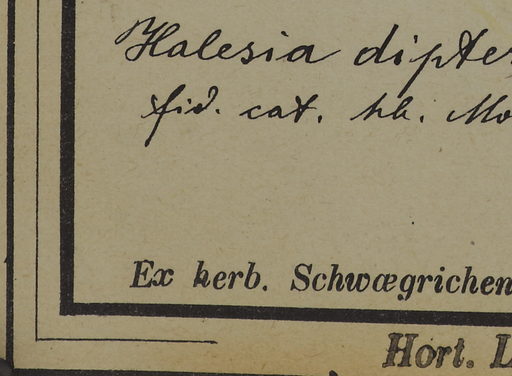 Halesia dipter
fid. cat. hb. Mo
Ex herb. Schwægrichen
Hort. L